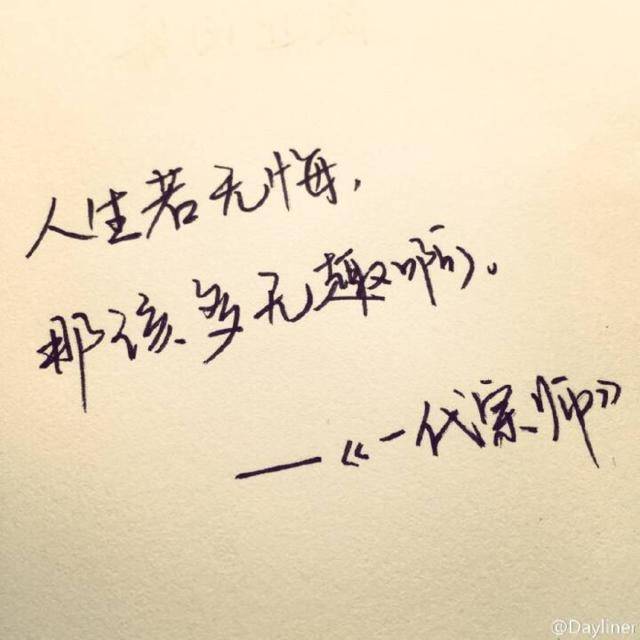 人生若无悔，
那该多无趣啊。
—《一代宗师》
@Dayliner